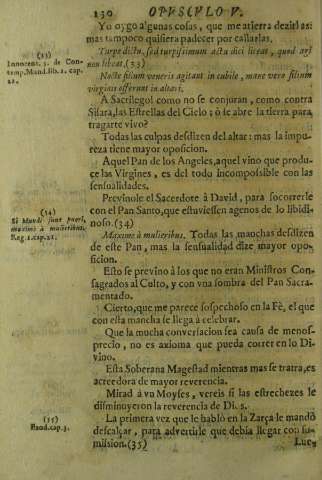 130 OPVSCVLO V.
Yo oygo algunas cosas, que me atierra dezirlas:
mas tampoco quisiera padecer por callarlas.
(33)
Innocent. 3. de Con-
temp. Mand. lib. 2. cap.
22.
Turpe dictu, sed turpissimum actu dici liceat, quod agi
non libeat.(33)
Nocte filium veneris agitant in cubile, mane vero filium
virginis offerunt in altari.
A Sacrilego! como no se conjuran, como contra
Sisara, las Estrellas del Cielo; ò se abre la tierra para
tragarte vivo?
Todas las culpas desdizen del altar: mas la impu-
reza tiene mayor oposicion.
Aquel Pan de los Angeles, aquel vino que produ-
ce las Virgines, es del todo incompossible con las
sensualidades.
Previnole el Sacerdote à David, para socorrerle
con el Pan Santo, que estuviessen agenos de lo libidi-
noso.(34)
(34)
Si Mundi sunt pueri,
maximè à mulieribus.
Reg. 1. cap. 21.
Maximè à mulieribus. Todas las manchas desdizen
de este Pan, mas la sensualidad dize mayor opo-
sicion.
Esto se previno à los que no eran Ministros Con-
sagrados al Culto, y con vna sombra del Pan Sacra-
mentado.
Cierto, que me parece sospechoso en la Fè, el que
con esta mancha se llega à celebrar.
Que la mucha conversacion sea causa de menos-
precio, no es axioma que pueda correr en lo Di-
vino.
Esta Soberana Magestad mientras mas se trata, es
acreedora de mayor reverencia.
Mirad à vn Moyses, vereis si las estrechezes le
disminuyeron la reverencia de Dios.
La primera vez que le hablò en la Zarça le mandò
descalçar, para advertirle que debia llegar con su-
mission.(35)
(35)
Exod. cap. 3.
Lue-